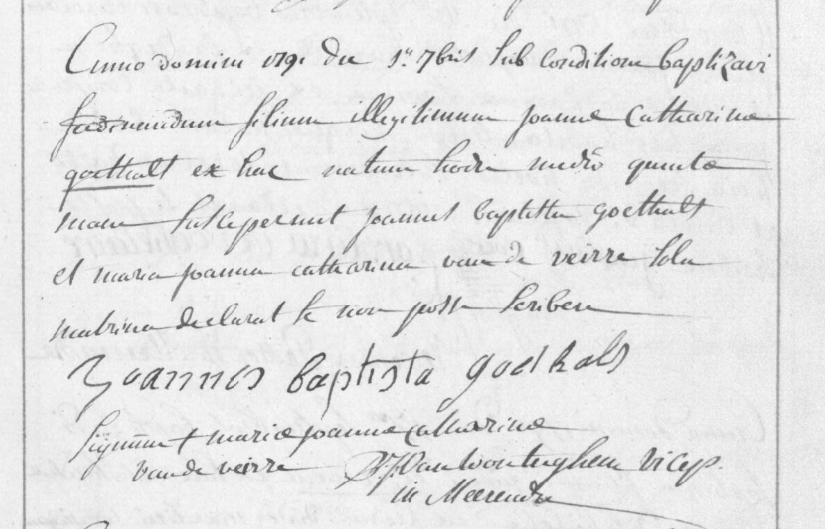 Anno domini 1791 die 1a 7bris sub conditione baptizavi
ferdinandum filium illegitimum joannæ Catharinæ
goethals ex hac natum hodie mediô quintæ
mane susceperunt joannes baptista goethals
et maria joanna catharina van de veirre sola
matrina declarat se non posse scribere
Joannes baptista goethals
Signum + mariæ joannæ catharinæ
van de veirre P:J: Van Wonterghem vicep.
in Meerendre